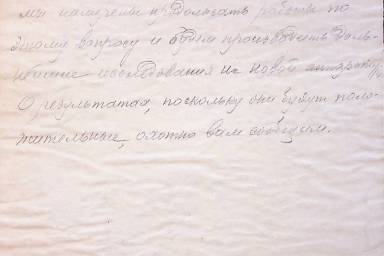 мы намерены продолжать работы по
этому вопросу и будем производить даль-
нейшие исследования на новой аппаратуре.
О результатах, поскольку они будут поло-
жительные, охотно вам сообщим.